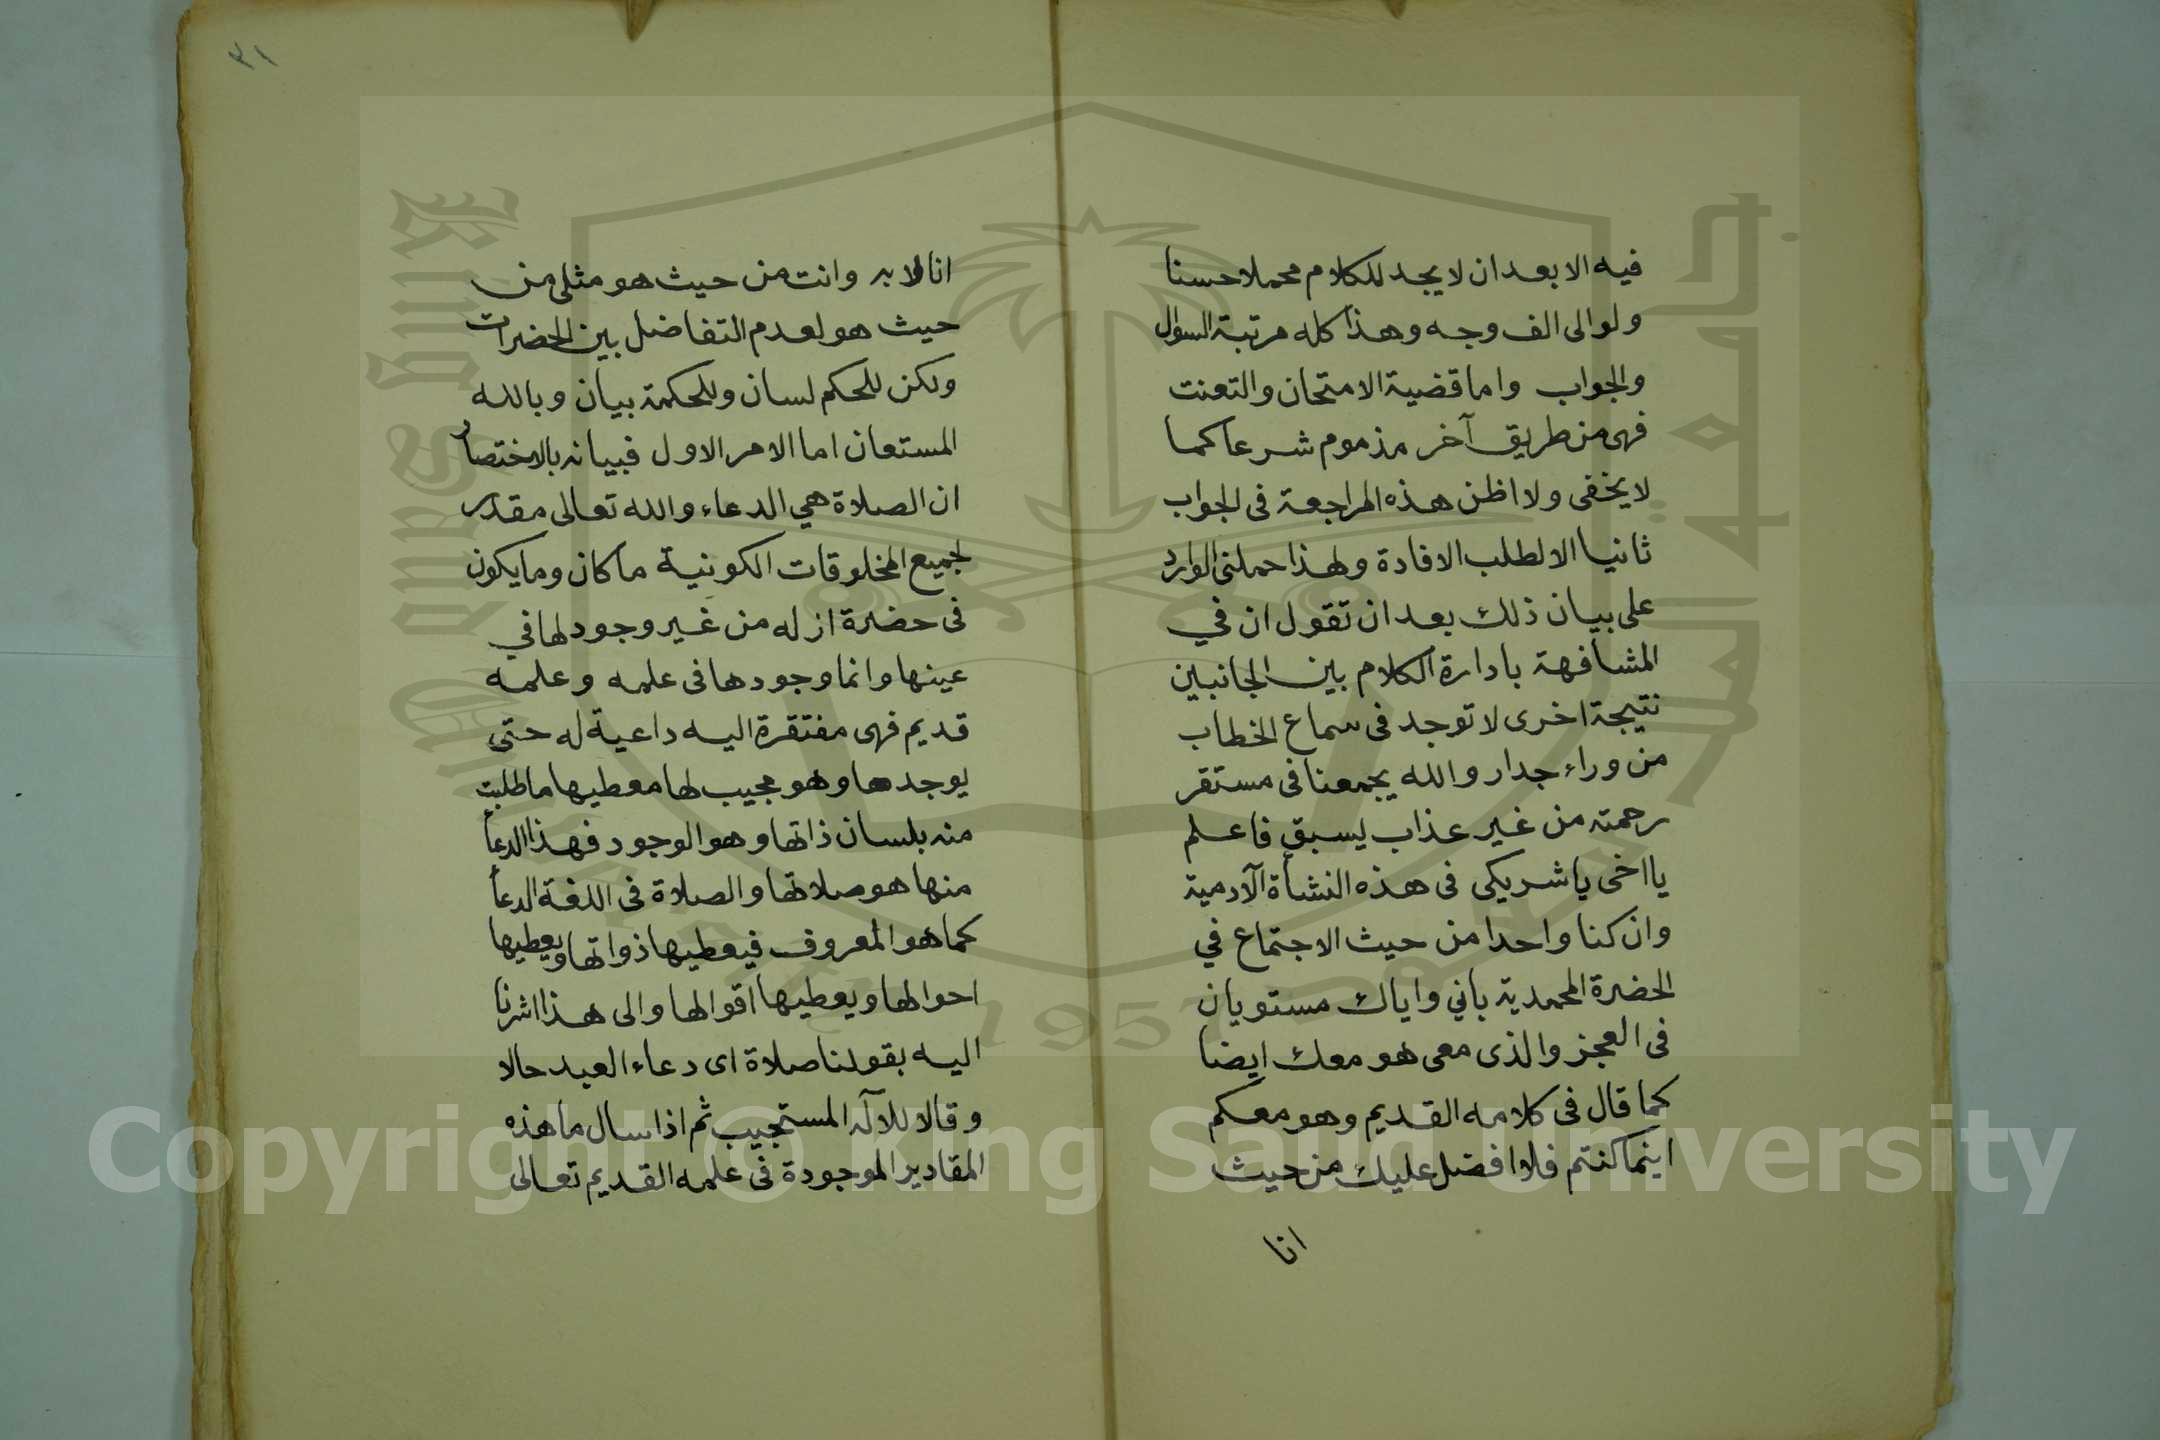 فيه الا بعد ان لا يجد للكلام محملا حسنا
ولو الى الف وجه وهذا كله مرتبة السوال
والجواب واما قضية الامتحان والتعنت
فهى من طريق آخر مذموم شرعا كما
لا يخفى ولا اظن هذه المراجعة فى الجواب
ثانيا الا لطلب الافادة ولهذا حملنى الوارد
على بيان ذلك بعد ان تقول ان في
المشافهة بادارة الكلام بين الجانبين
نتيجة اخرى لا توجد فى سماع الخطاب
من وراء جدار والله يجمعنا فى مستقر
رحمته من غير عذاب يسبق فاعلم
يا اخى يا شريكى فى هذه النشأة الآدمية
وان كنا واحدا من حيث الاجتماع في
الحضرة المحمدية باني واياك مستويان
فى العجز والذى معى هو معك ايضا
كما قال فى كلامه القديم وهو معكم
اينما كنتم فلا افضل عليك من حيث
انا
٣١
انا الا به وانت من حيث هو مثلى من
حيث هو لعدم التفاضل بين الحضرات
ولكن للحكم لسان وللحكمة بيان وبالله
المستعان اما الامر الاول فبيانه بالاختصار
ان الصلاة هي الدعاء والله تعالى مقدر
لجميع المخلوقات الكونية ما كان وما يكون
فى حضرة ازله من غير وجود لها في
عينها وانما وجودها فى علمه وعلمه
قديم فهى مفتقرة اليه داعية له حتى
يوجدها وهو مجيب لها معطيها ما طلبت
منه بلسان ذاتها وهو الوجود فهذا الدعأ
منها هو صلاتها والصلاة فى اللغة الدعأ
كما هو المعروف فيعطيها ذواتها ويعطيها
احوالها ويعطيها اقوالها والى هذا اشرنا
اليه بقولنا صلاة اى دعاء العبد حالا
وقالا للآله المستجيب ثم اذا سال ما هذه
المقادير الموجودة فى علمه القديم تعالى
جامعة الملك سعود
King Saud University
1957
Copyright © King Saud University